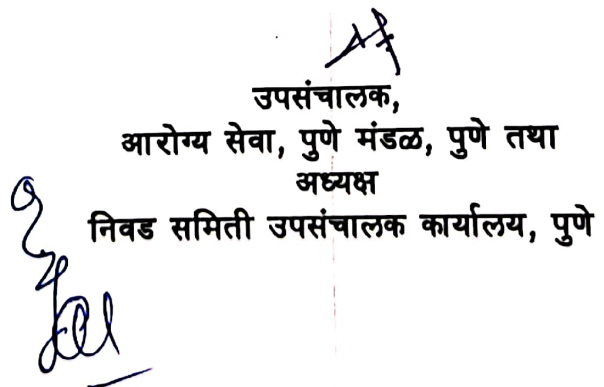 उपसंचालक,
आरोग्य सेवा, पुणे मंडळ, पुणे तथा
अध्यक्ष
निवड समिती उपसंचालक कार्यालय, पुणे